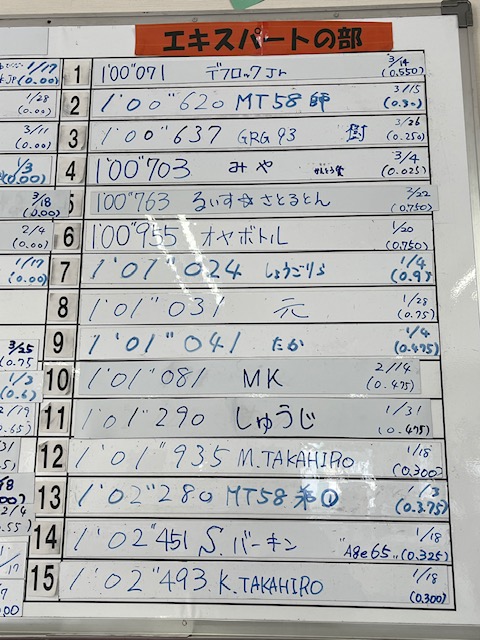 エキスパートの部
1 1'00"071 デフロックJr 3/14 (0.550)
2 1'00"620 MT58師 3/15
3 1'00"637 GRG93 樹 3/26 (0.250)
4 1'00"703 みや 3/4 (0.025)
5 1'00"763 るぃす☆さとるとん 3/22 (0.750)
6 1'00"955 オヤボトル 1/20 (0.750)
7 1'01"024 しょうごりら 1/4 (0.9)
8 1'01"031 元 1/28 (0.75)
9 1'01"041 たか 1/4 (0.475)
10 1'01"081 MK 2/14 (0.475)
11 1'01"290 しゅうじ 1/31 (0.475)
12 1'01"935 M.TAKAHIRO 1/18 (0.300)
13 1'02"280 MT58弟① 1/3 (0.375)
14 1'02"451 S.バーキン "Age65" 1/18 (0.325)
15 1'02"493 K.TAKAHIRO 1/18 (0.300)
1/17 (0.00)
1/28 (0.00)
3/11 (0.00)
1/3 (0.00)
3/18 (0.00)
2/4 (0.00)
1/17 (0.00)
3/25 (0.75
1/3 (0.6)